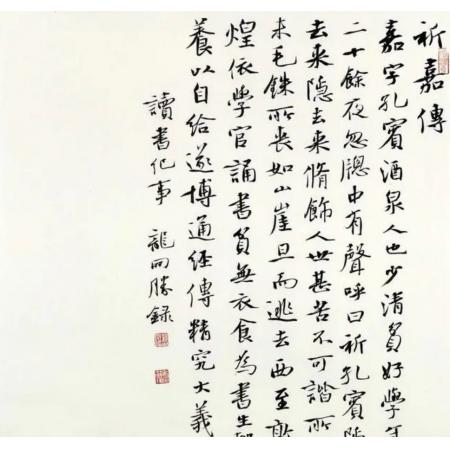 祈嘉傳
嘉字孔賓酒泉人也少清貧好學年
二十餘夜忽牕中有聲呼曰祈孔賓隱
去來隱去來脩飾人世甚苦不可諧所
未毛銖所喪如山崖旦而逃去西至敦
煌依學官誦書貧無衣食為書生都
養以自給遂博通經傳精究大義
讀書記事 龍開勝錄